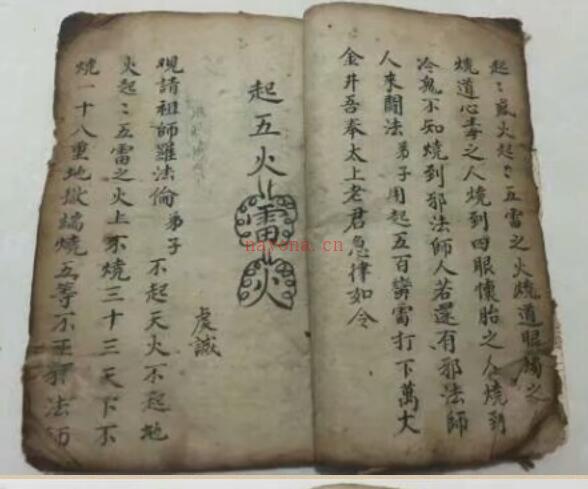 起〻風火起〻五雷之火燒道眼觸之
燒道心毒之人燒到四眼懷胎之人燒到
冷鬼不知燒到邪法師人若還有邪法師
人來鬪法弟子用起五百蠻雷打下萬丈
金井吾奉太上老君急律如令
起五火雷火
虔誠
觀請祖師羅法倫弟子 不起天火不起地
火起〻五雷之火上不燒三十三天下不
燒一十八重地獄端燒五等不正邪法師
nayona.cn